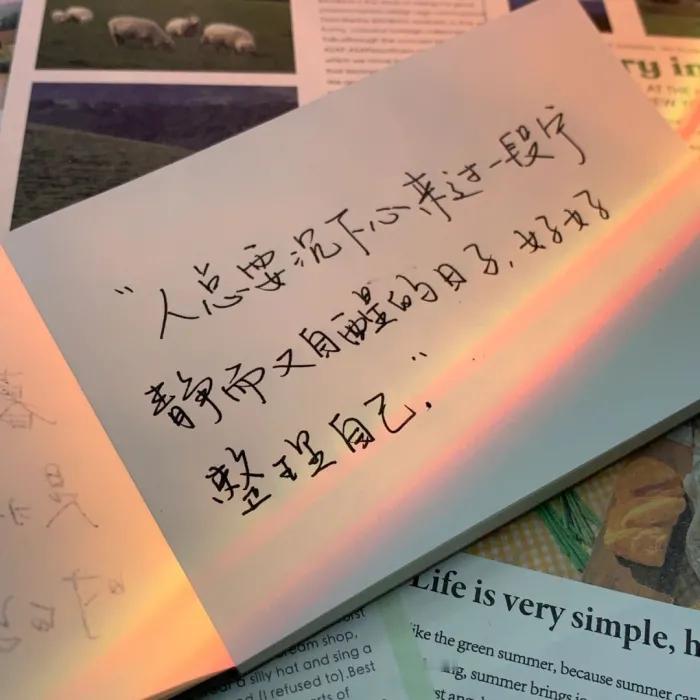 "人总要沉下心来过一段宁
静而又自醒的日子,好好
整理自己."
ry in
AT THE
Life is very simple, h
ike the green summer, because summer ca
summer brings
eam shop,
a silly hat and sing a
(I refused to).Best
rts of